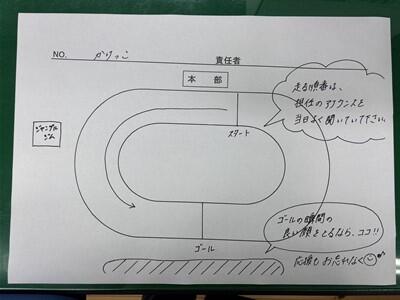 NO. かけっこ 責任者
本 部
走る順番は、
担任のアナウンスを
当日よく聞いていて下さい。
スタート
ジャングル
ジム
ゴールの瞬間の
良い顔をとるなら、ココ!!
ゴール
応援もお忘れなく